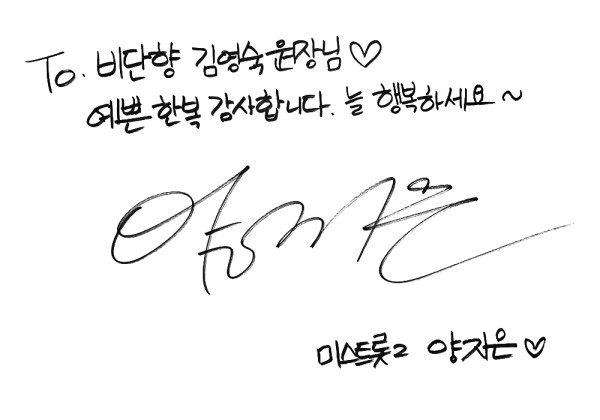 To. 비단향 김영숙원장님♡
예쁜 한복 감사합니다. 늘 행복하세요~
양지은
미스트롯2 양지은♡